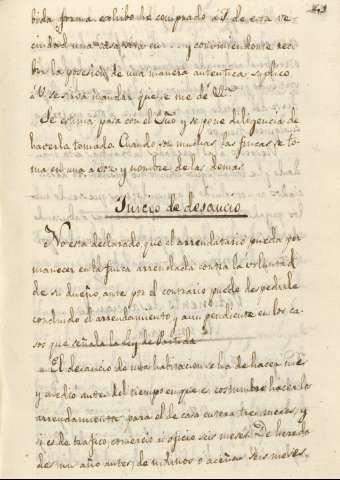 43
bida forma exhibo he comprado a F. de esta ve-
cindad una casa sita en ... y conviniendome reci-
bir la posesion de una manera autentica suplico
a V. se sirva mandar que se me dé &ª
Se estima para con el Sño y se pone diligencia de
haberla tomado. Cuando son muchas las fincas se to-
ma en una a voz y nombre de las demas.
Juicio de desaucio
No esta declarado que el arrendatario pueda per-
manecer en la finca arrendada contra la voluntad
de su dueño, ante por el contrario puede despedirle
concluido el arrendamiento y aun pendiente en los ca-
sos que señala la ley de Partida
El desaucio de una habitacion se ha de hacer mes
y medio antes del tiempo en que es costumbre hacer los
arrendamientos para el de casa entera tres meses, y
si es de trafico comercio u oficio seis meses. De hereda
des un año antes, de molinos o aceñas seis meses.